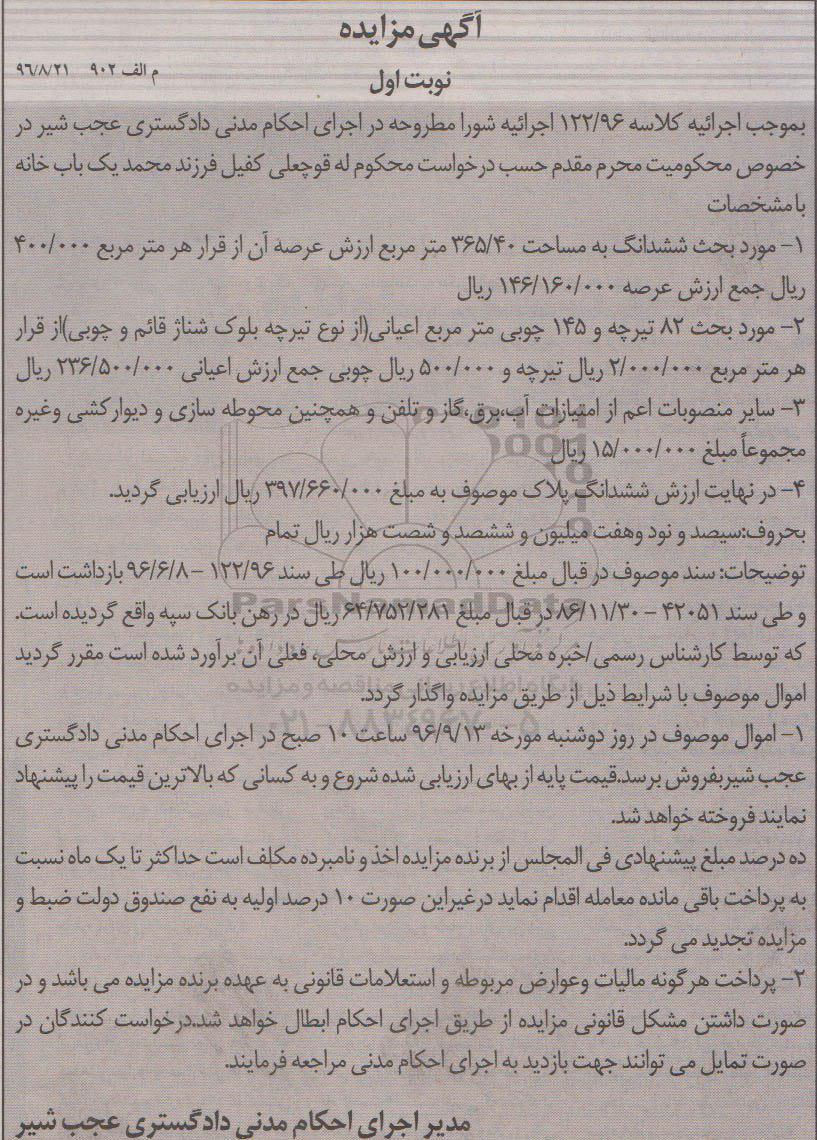 آگهی مزایده
نوبت اول
م الف ۹۰۲ ۹۶/۸/۲۱
بموجب اجرائیه کلاسه ۱۲۲/۹۶ اجرائیه شورا مطروحه در اجرای احکام مدنی دادگستری عجب شیر در
خصوص محکومیت محرم مقدم حسب درخواست محکوم له قوچعلی کفیل فرزند محمد یک باب خانه
با مشخصات
۱- مورد بحث ششدانگ به مساحت ۳۶۵/۴۰ متر مربع ارزش عرصه آن از قرار هر متر مربع ۴۰۰/۰۰۰
ریال جمع ارزش عرصه ۱۴۶/۱۶۰/۰۰۰ ریال
۲- مورد بحث ۸۲ تیرچه و ۱۴۵ چوبی متر مربع اعیانی(از نوع تیرچه بلوک شناژ قائم و چوبی)از قرار
هر متر مربع ۲/۰۰۰/۰۰۰ ریال تیرچه و ۵۰۰/۰۰۰ ریال چوبی جمع ارزش اعیانی ۲۳۶/۵۰۰/۰۰۰ ریال
۳- سایر منصوبات اعم از امتیازات آب،برق،گاز و تلفن و همچنین محوطه سازی و دیوارکشی وغیره
مجموعاً مبلغ ۱۵/۰۰۰/۰۰۰ ریال
۴- در نهایت ارزش ششدانگ پلاک موصوف به مبلغ ۳۹۷/۶۶۰/۰۰۰ ریال ارزیابی گردید.
بحروف:سیصد و نود وهفت میلیون و ششصد و شصت هزار ریال تمام
توضیحات: سند موصوف در قبال مبلغ ۱۰۰/۰۰۰/۰۰۰ ریال طی سند ۱۲۲/۹۶ – ۹۶/۶/۸ بازداشت است
و طی سند ۴۲۰۵۱ – ۸۶/۱۱/۳۰ در قبال مبلغ ۶۴/۷۵۲/۲۸۱ ریال در رهن بانک سپه واقع گردیده است.
که توسط کارشناس رسمی/خبره محلی ارزیابی و ارزش محلی، فعلی آن برآورد شده است مقرر گردید
اموال موصوف با شرایط ذیل از طریق مزایده واگذار گردد.
۱- اموال موصوف در روز دوشنبه مورخه ۹۶/۹/۱۳ ساعت ۱۰ صبح در اجرای احکام مدنی دادگستری
عجب شیربفروش برسد.قیمت پایه از بهای ارزیابی شده شروع و به کسانی که بالاترین قیمت را پیشنهاد
نمایند فروخته خواهد شد.
ده درصد مبلغ پیشنهادی فی المجلس از برنده مزایده اخذ و نامبرده مکلف است حداکثر تا یک ماه نسبت
به پرداخت باقی مانده معامله اقدام نماید درغیراین صورت ۱۰ درصد اولیه به نفع صندوق دولت ضبط و
مزایده تجدید می گردد.
۲- پرداخت هرگونه مالیات وعوارض مربوطه و استعلامات قانونی به عهده برنده مزایده می باشد و در
صورت داشتن مشکل قانونی مزایده از طریق اجرای احکام ابطال خواهد شد.درخواست کنندگان در
صورت تمایل می توانند جهت بازدید به اجرای احکام مدنی مراجعه فرمایند.
مدیر اجرای احکام مدنی دادگستری عجب شیر
ParsNamadData
۰۲۱-۸۸۳۴۹۶۷۰-۵